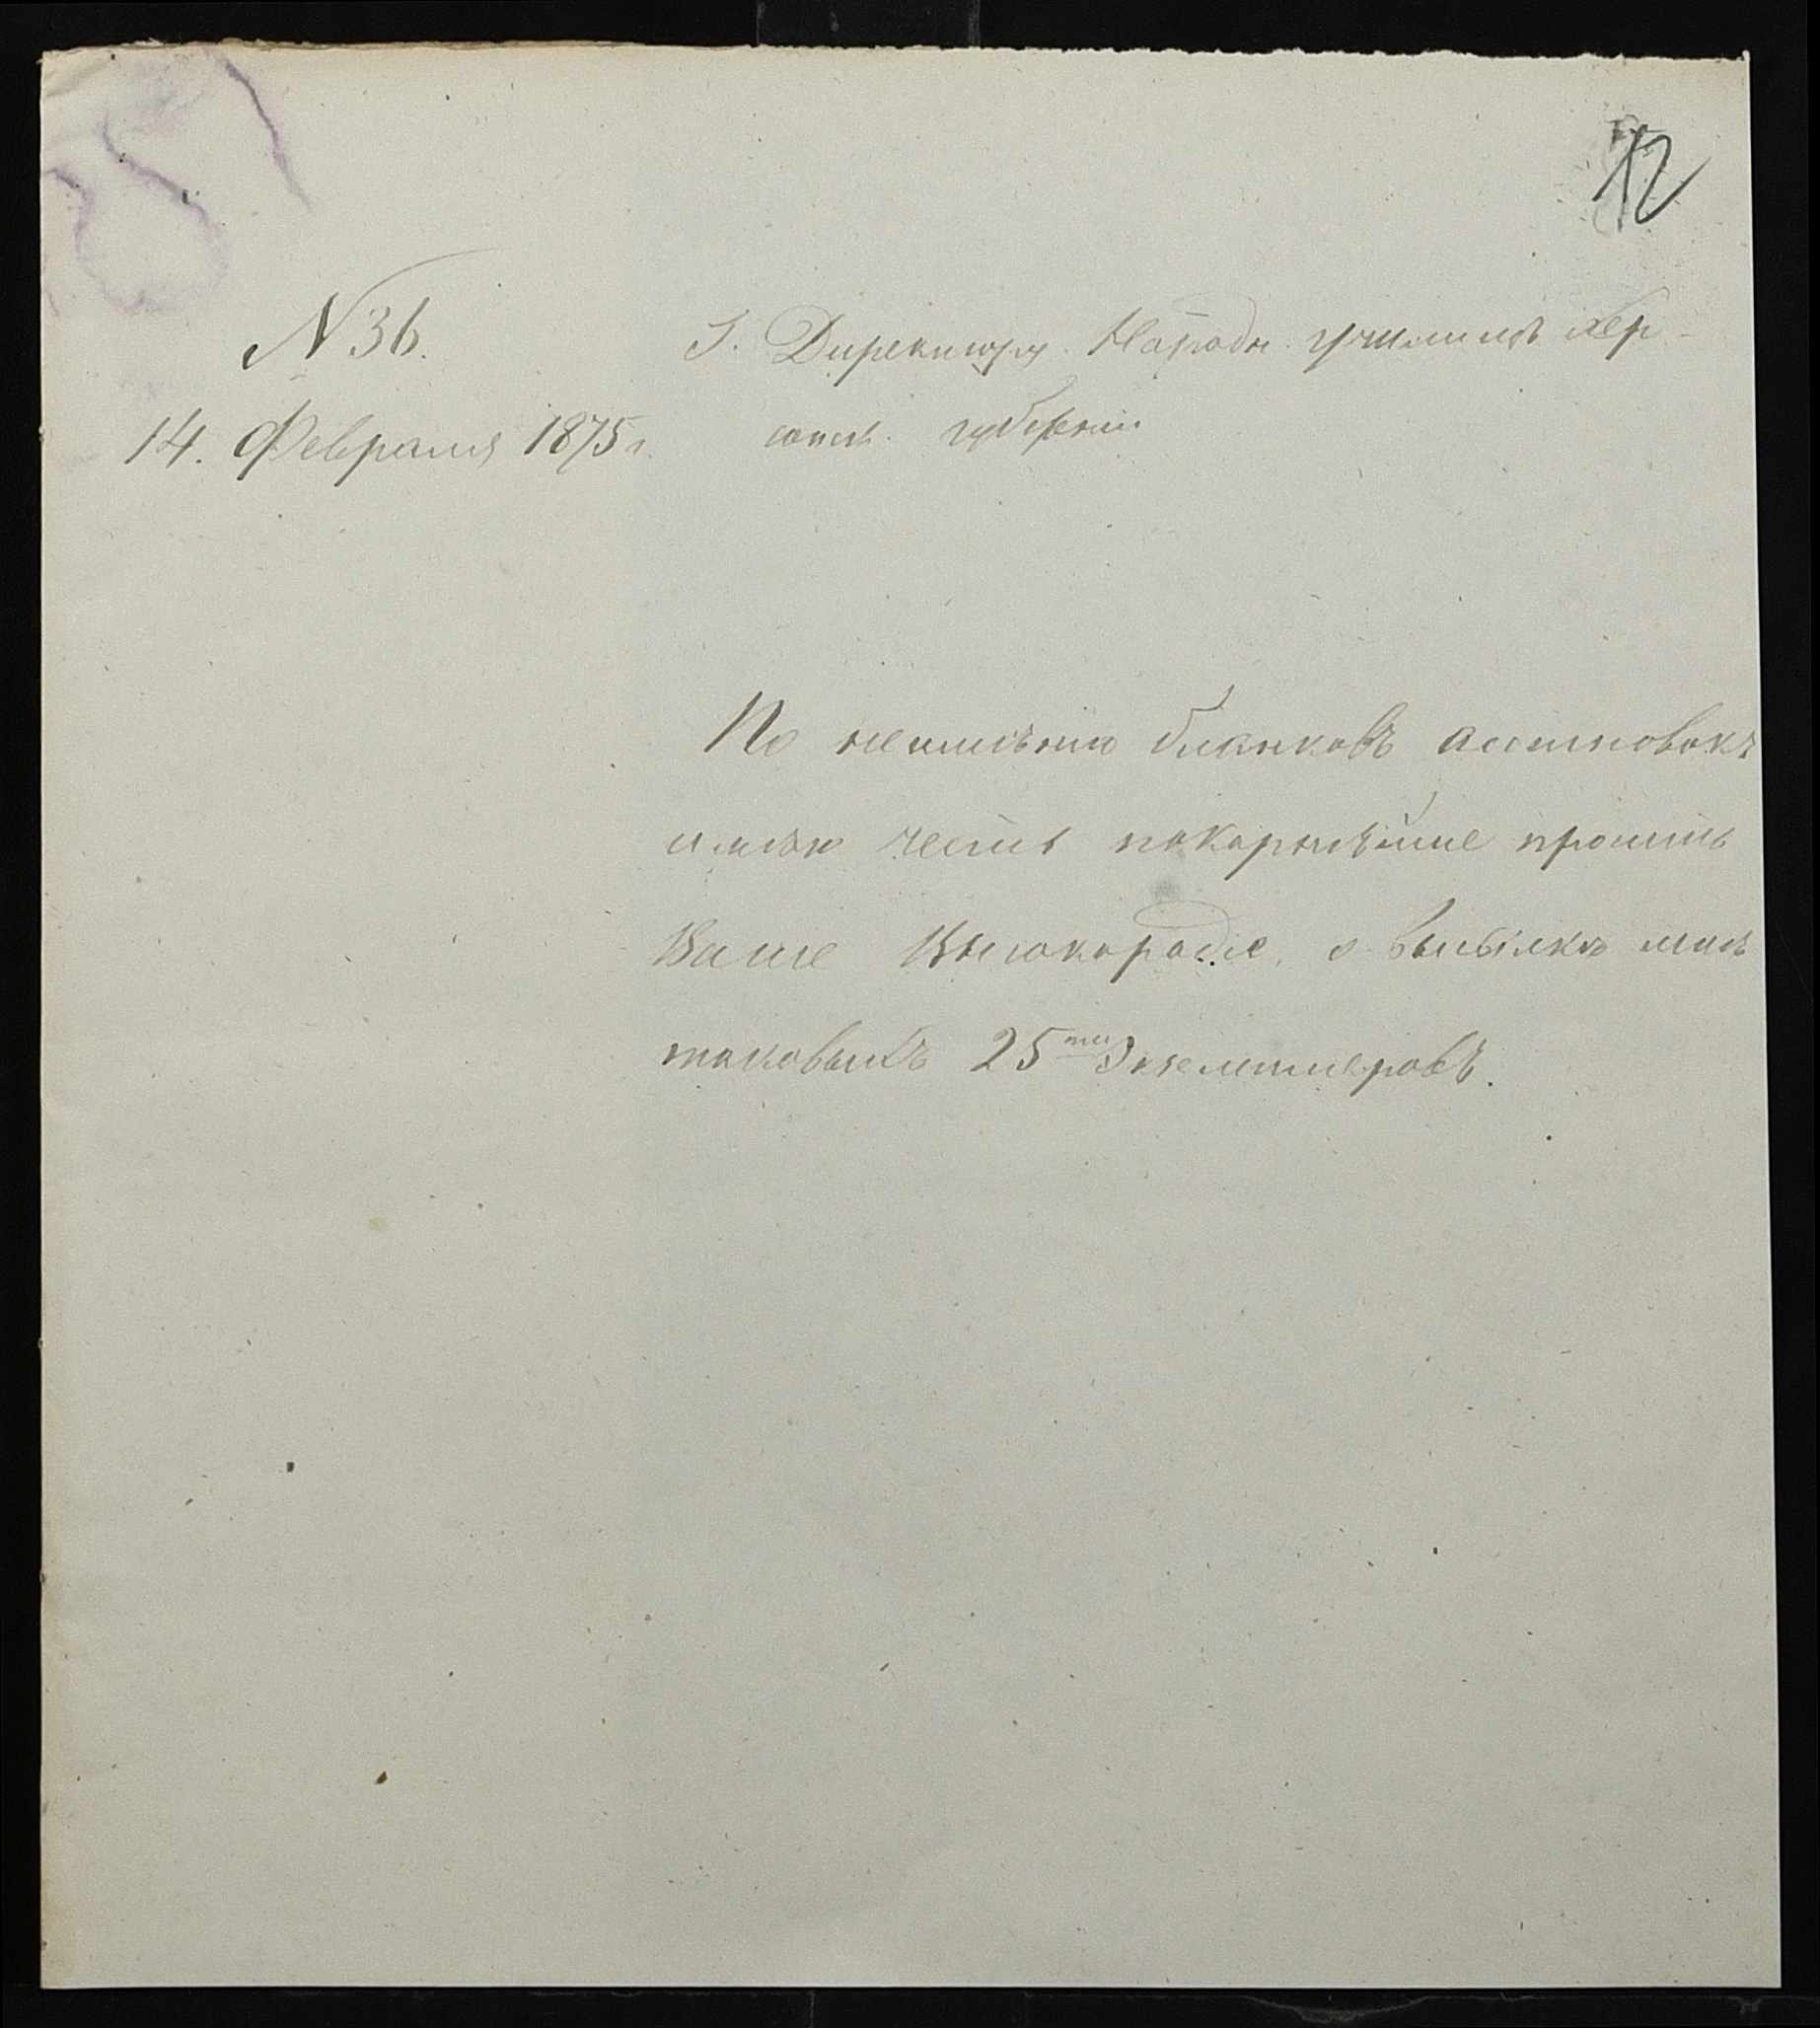 12
N 36.
14. Февраля 1875 г.
Г. Директору Народн. училищъ Хер-
сонск. губерніи
По неимѣнію бланковъ ассигновокъ
имѣю честь покорнѣйше просить
Ваше Высокородіе, о высылкѣ мнѣ
таковыхъ 25ти Экземпляровъ.